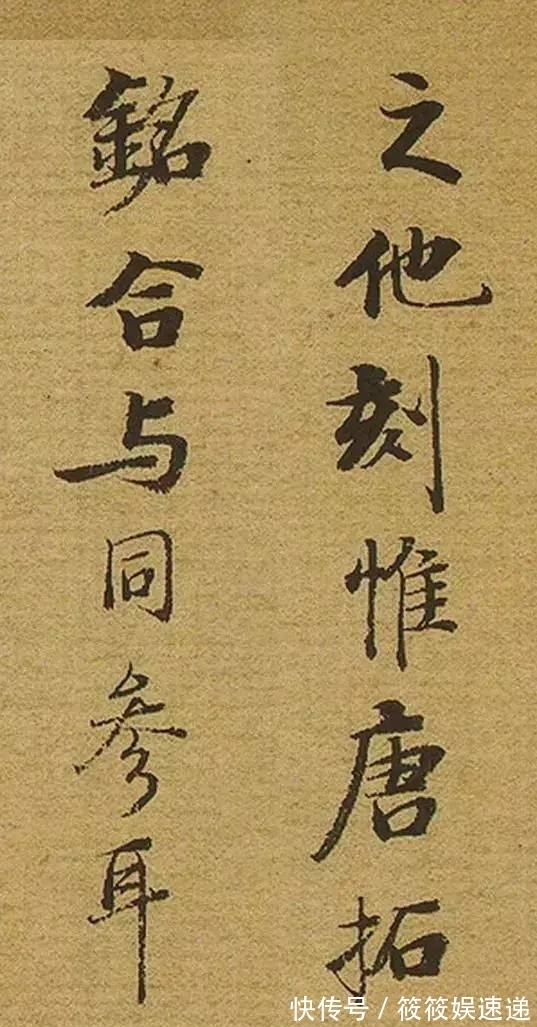 之他刻惟唐拓
銘合与同参耳
快传号/筱筱娱速递